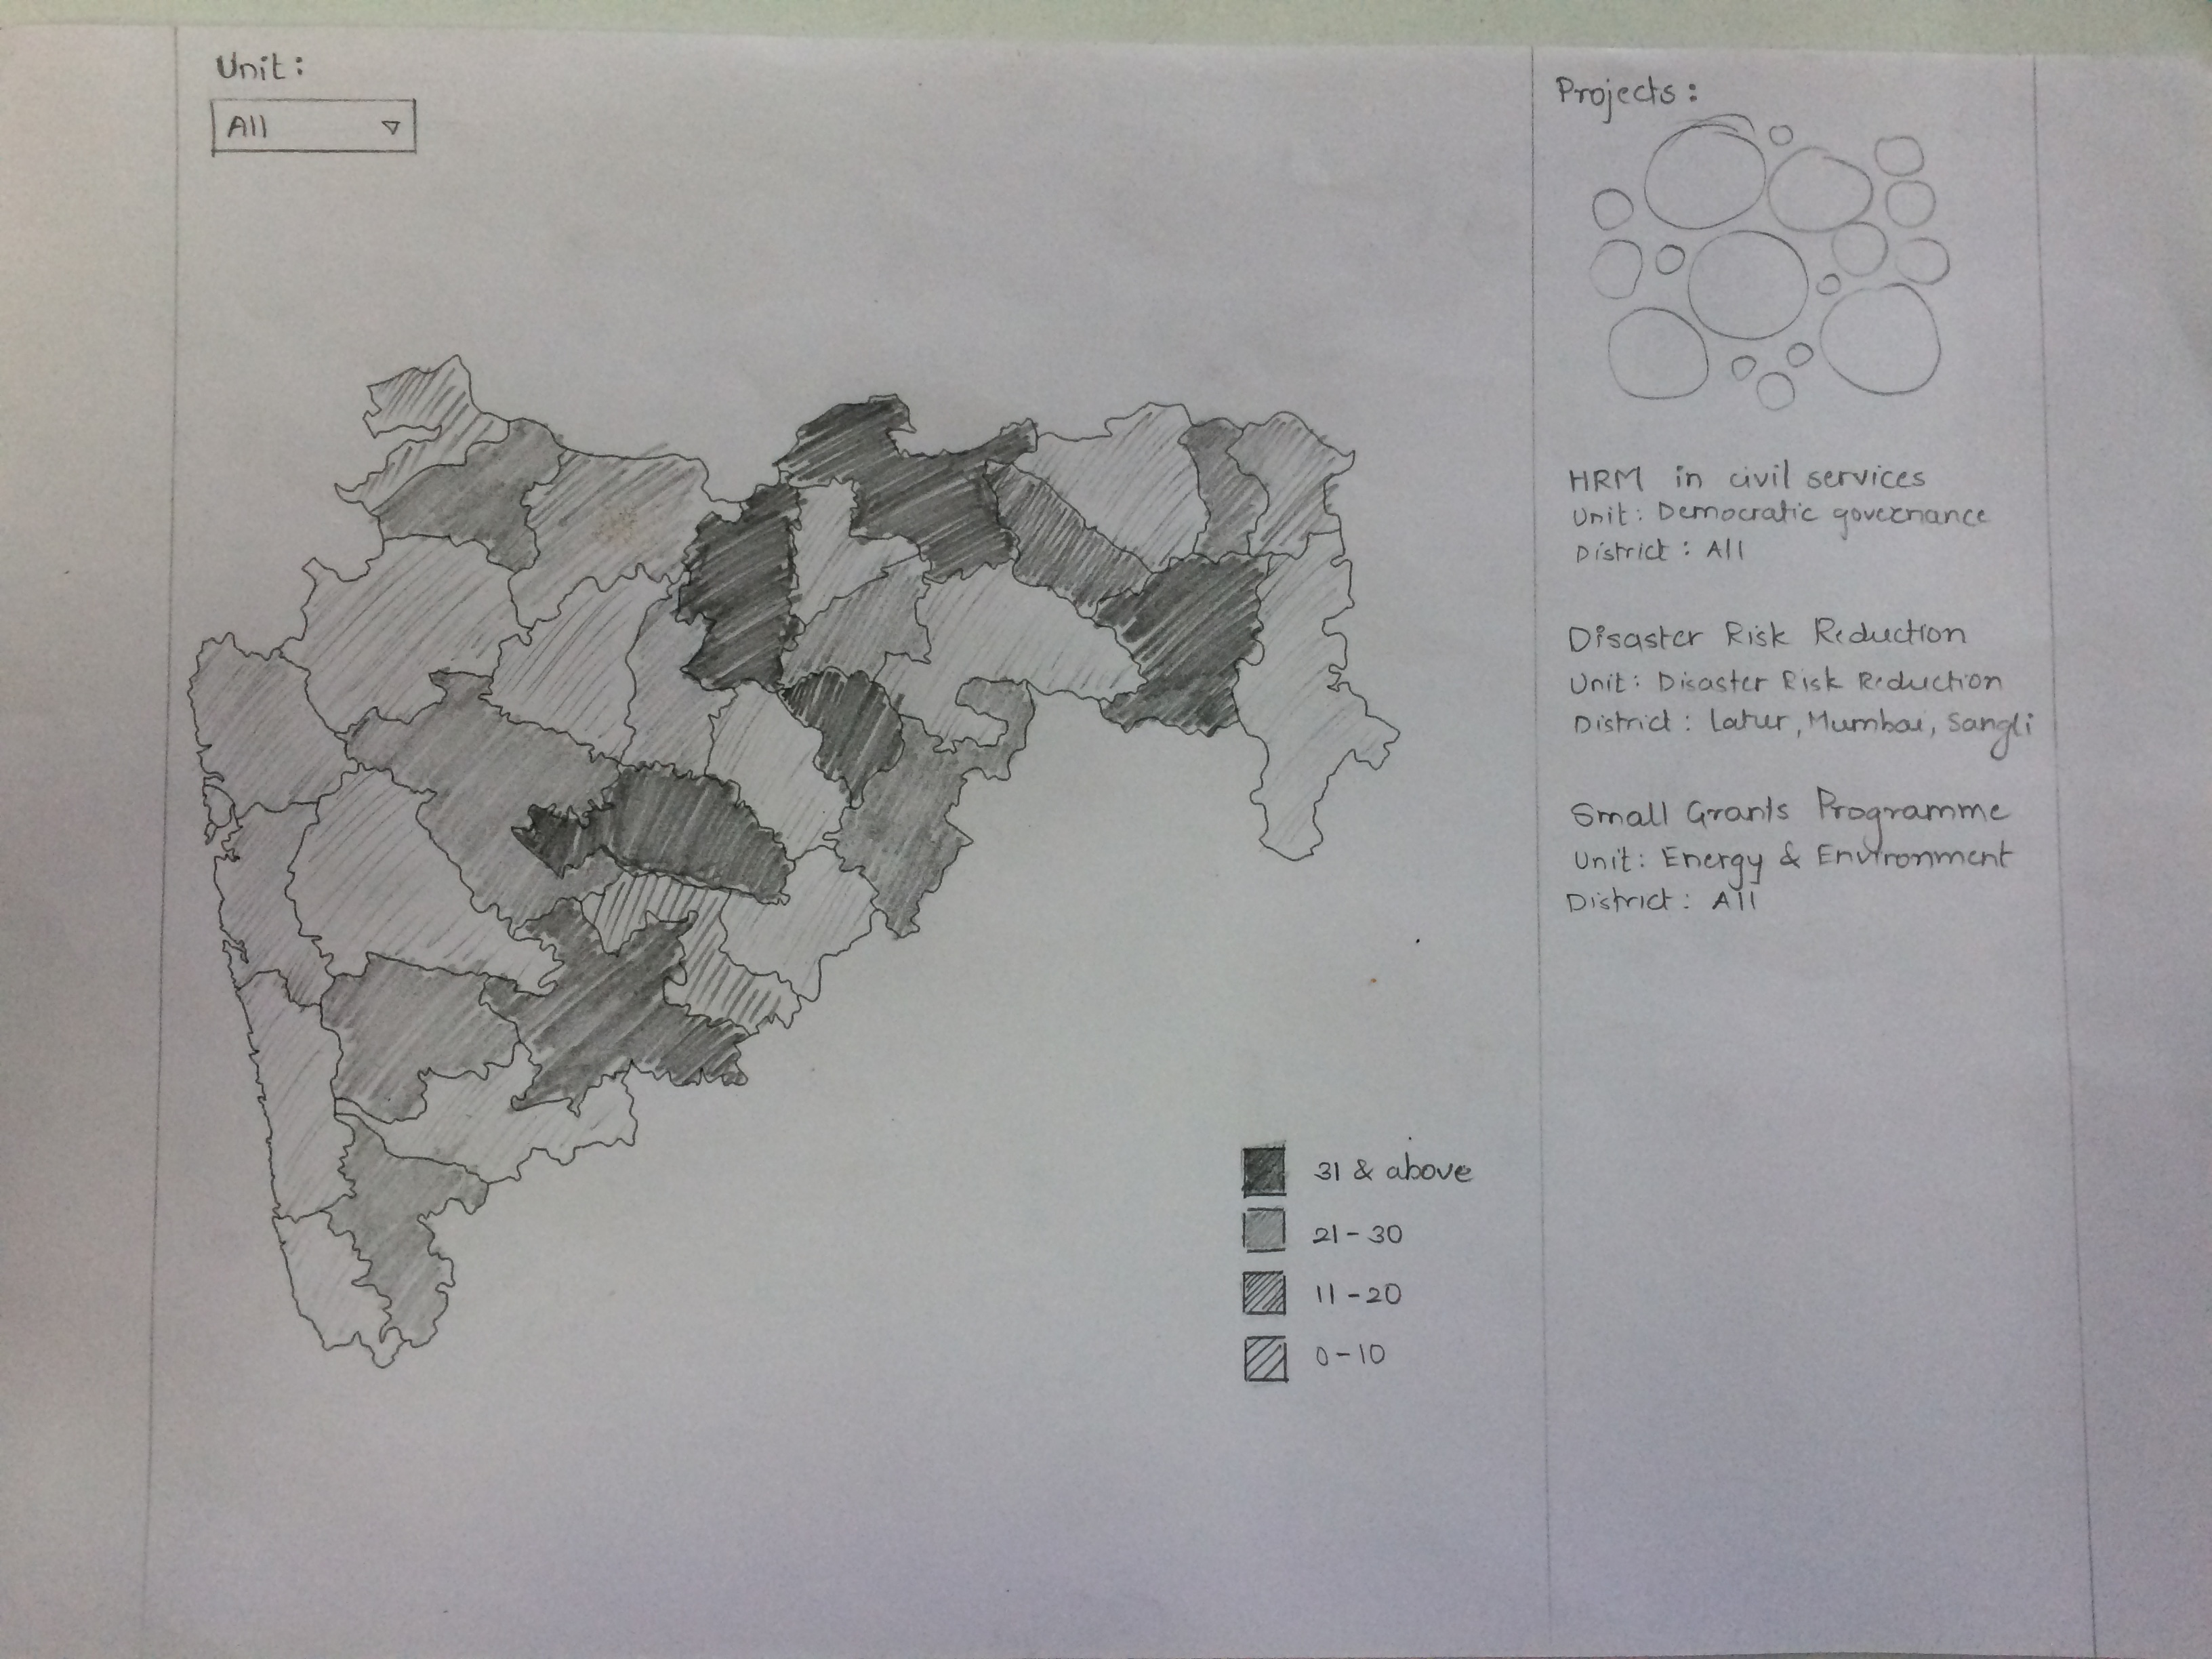 Unit:
All
Projects:
HRM in civil services
Unit: Democratic governance
District: All
Disaster Risk Reduction
Unit: Disaster Risk Reduction
District: Latur, Mumbai, Sangli
Small Grants Programme
Unit: Energy & Environment
District: All
31 & above
21-30
11-20
0-10